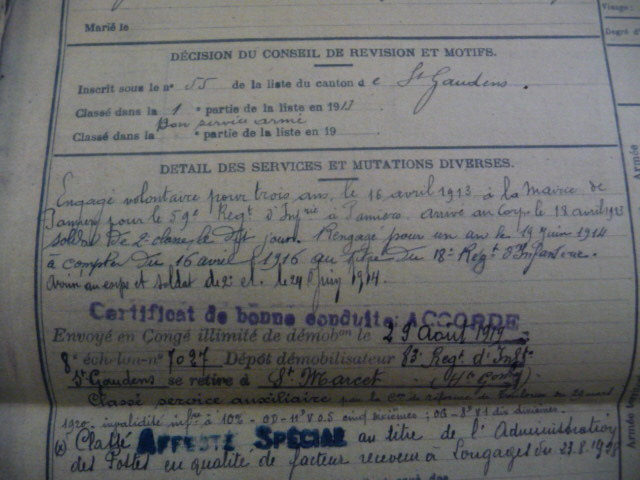 Marié le
DÉCISION DU CONSEIL DE REVISION ET MOTIFS.
Inscrit sous le nº 55 de la liste du canton d e St Gaudens.
Classé dans la 1 e partie de la liste en 1913
Bon service armé
Classé dans la e partie de la liste en 19
DETAIL DES SERVICES ET MUTATIONS DIVERSES.
Engagé volontaire pour trois ans, le 16 avril 1913 à la Mairie de
Pamiers pour le 59e Régt d'Infrie à Pamiers. arrivé au Corps le 18 avril 1913
soldat de 2e classe le dit jour. Rengagé pour un an le 19 juin 1914
à compter du 16 avril 1916 au titre du 18e Régt d'Infanterie.
Arrivé au corps et soldat de 2e cl. le 24 juin 1914.
Certificat de bonne conduite ACCORDÉ
Envoyé en Congé illimité de démob on le 29 Août 1919
8e échelon nº 7027 Dépôt démobilisateur 83e Régt d'Inft
St Gaudens se retire à St Marcet (Hte Gar)
Classé service auxiliaire par la Con de réforme de Toulouse du mars
1920 invalidité infre à 10% OD = V 0.5 cinq dixièmes ; OG = V 1 dix dixièmes.
Classé AFFECTÉ SPÉCIAL au titre de l'Administration
des Postes en qualité de facteur receveur à Longages du 23.8.1928
Visage :
Armée